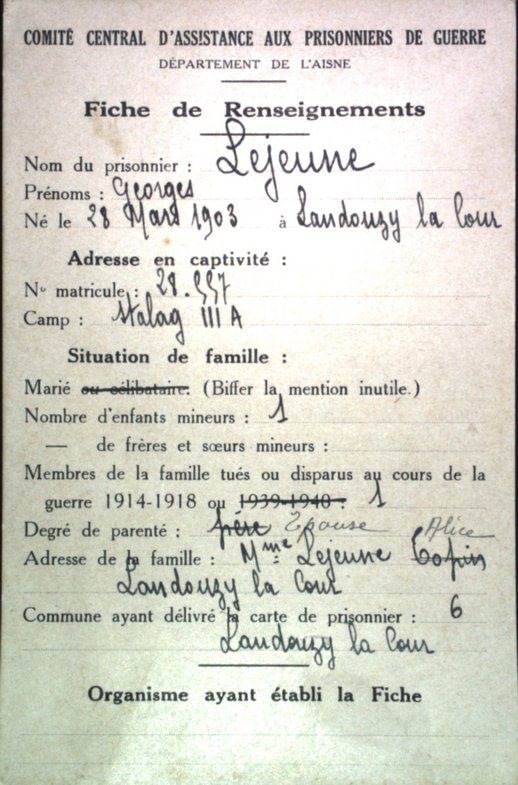 COMITÉ CENTRAL D'ASSISTANCE AUX PRISONNIERS DE GUERRE
DÉPARTEMENT DE L'AISNE
Fiche de Renseignements
Nom du prisonnier : Lejeune
Prénoms : Georges
Né le 28 Mars 1903 à Landouzy la Cour
Adresse en captivité :
N° matricule : 28.557
Camp : Stalag III A
Situation de famille :
Marié ou célibataire. (Biffer la mention inutile.)
Nombre d'enfants mineurs : 1
— de frères et sœurs mineurs :
Membres de la famille tués ou disparus au cours de la
guerre 1914-1918 ou 1939-1940 : 1
Degré de parenté : père Epouse Alice
Adresse de la famille : Mme Lejeune Copin
Landouzy la Cour
Commune ayant délivré la carte de prisonnier : 6
Landouzy la Cour
Organisme ayant établi la Fiche